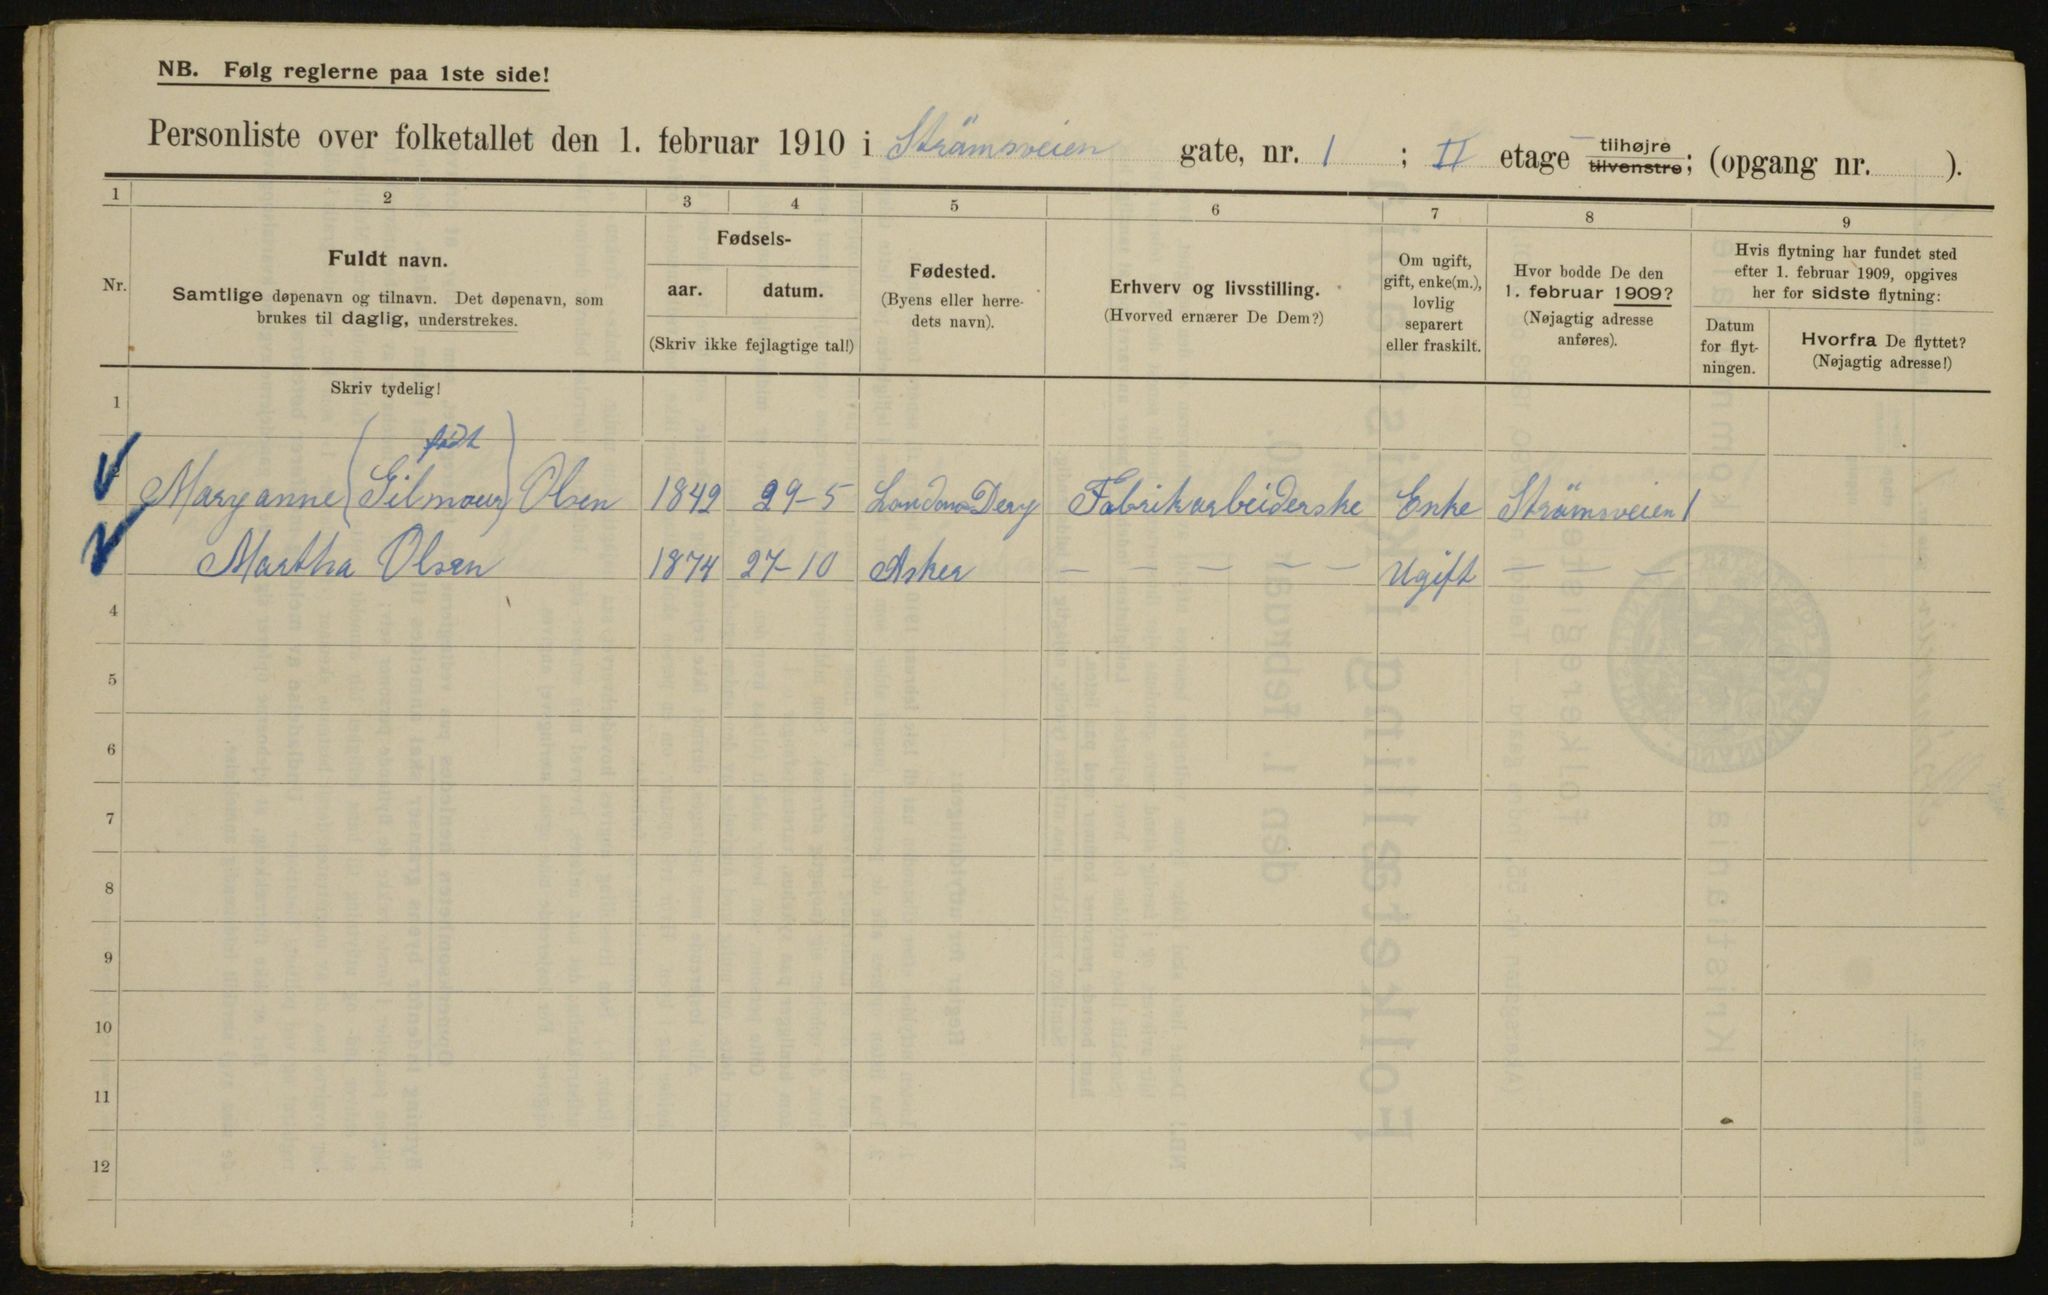 NB. Følg reglerne paa 1ste side!
Personliste over folketallet den 1. februar 1910 i Strömsveien gate, nr. 1 ; II etage tilhøjre tilvenstre; (opgang nr. ).
1 2 3 4 5 6 7 8 9
Nr.
Fuldt navn.
Samtlige døpenavn og tilnavn. Det døpenavn, som
brukes til daglig, understrekes.
Fødsels-
aar. datum.
(Skriv ikke fejlagtige tal!)
Fødested.
(Byens eller herre-
dets navn).
Erhverv og livsstilling.
(Hvorved ernærer De Dem?)
Om ugift,
gift, enke(m.),
lovlig
separert
eller fraskilt.
Hvor bodde De den
1. februar 1909?
(Nøjagtig adresse
anføres).
Hvis flytning har fundet sted
efter 1. februar 1909, opgives
her for sidste flytning:
Datum
for flyt-
ningen.
Hvorfra De flyttet?
(Nøjagtig adresse!)
Skriv tydelig!
1
født
Maryanne (Gilmour) Olsen 1842 29-5 London Dery Fabrikarbeiderske Enke Strömsveien 1
Martha Olsen 1874 27-10 Asker — — — — — Ugift — — —
4
5
6
7
8
9
10
11
12